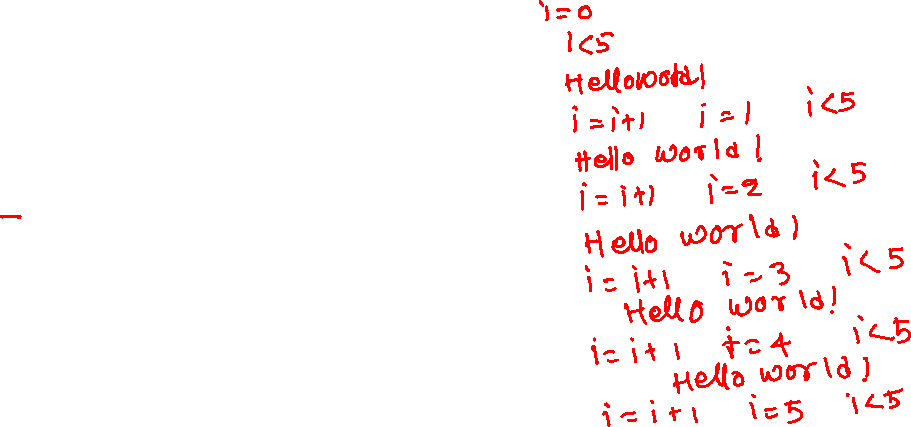 i=0
i<5
Hello world!
i=i+1 i=1 i<5
Hello world!
i=i+1 i=2 i<5
Hello world!
i=i+1 i=3 i<5
Hello world!
i=i+1 i=4 i<5
Hello world!
i=i+1 i=5 i<5